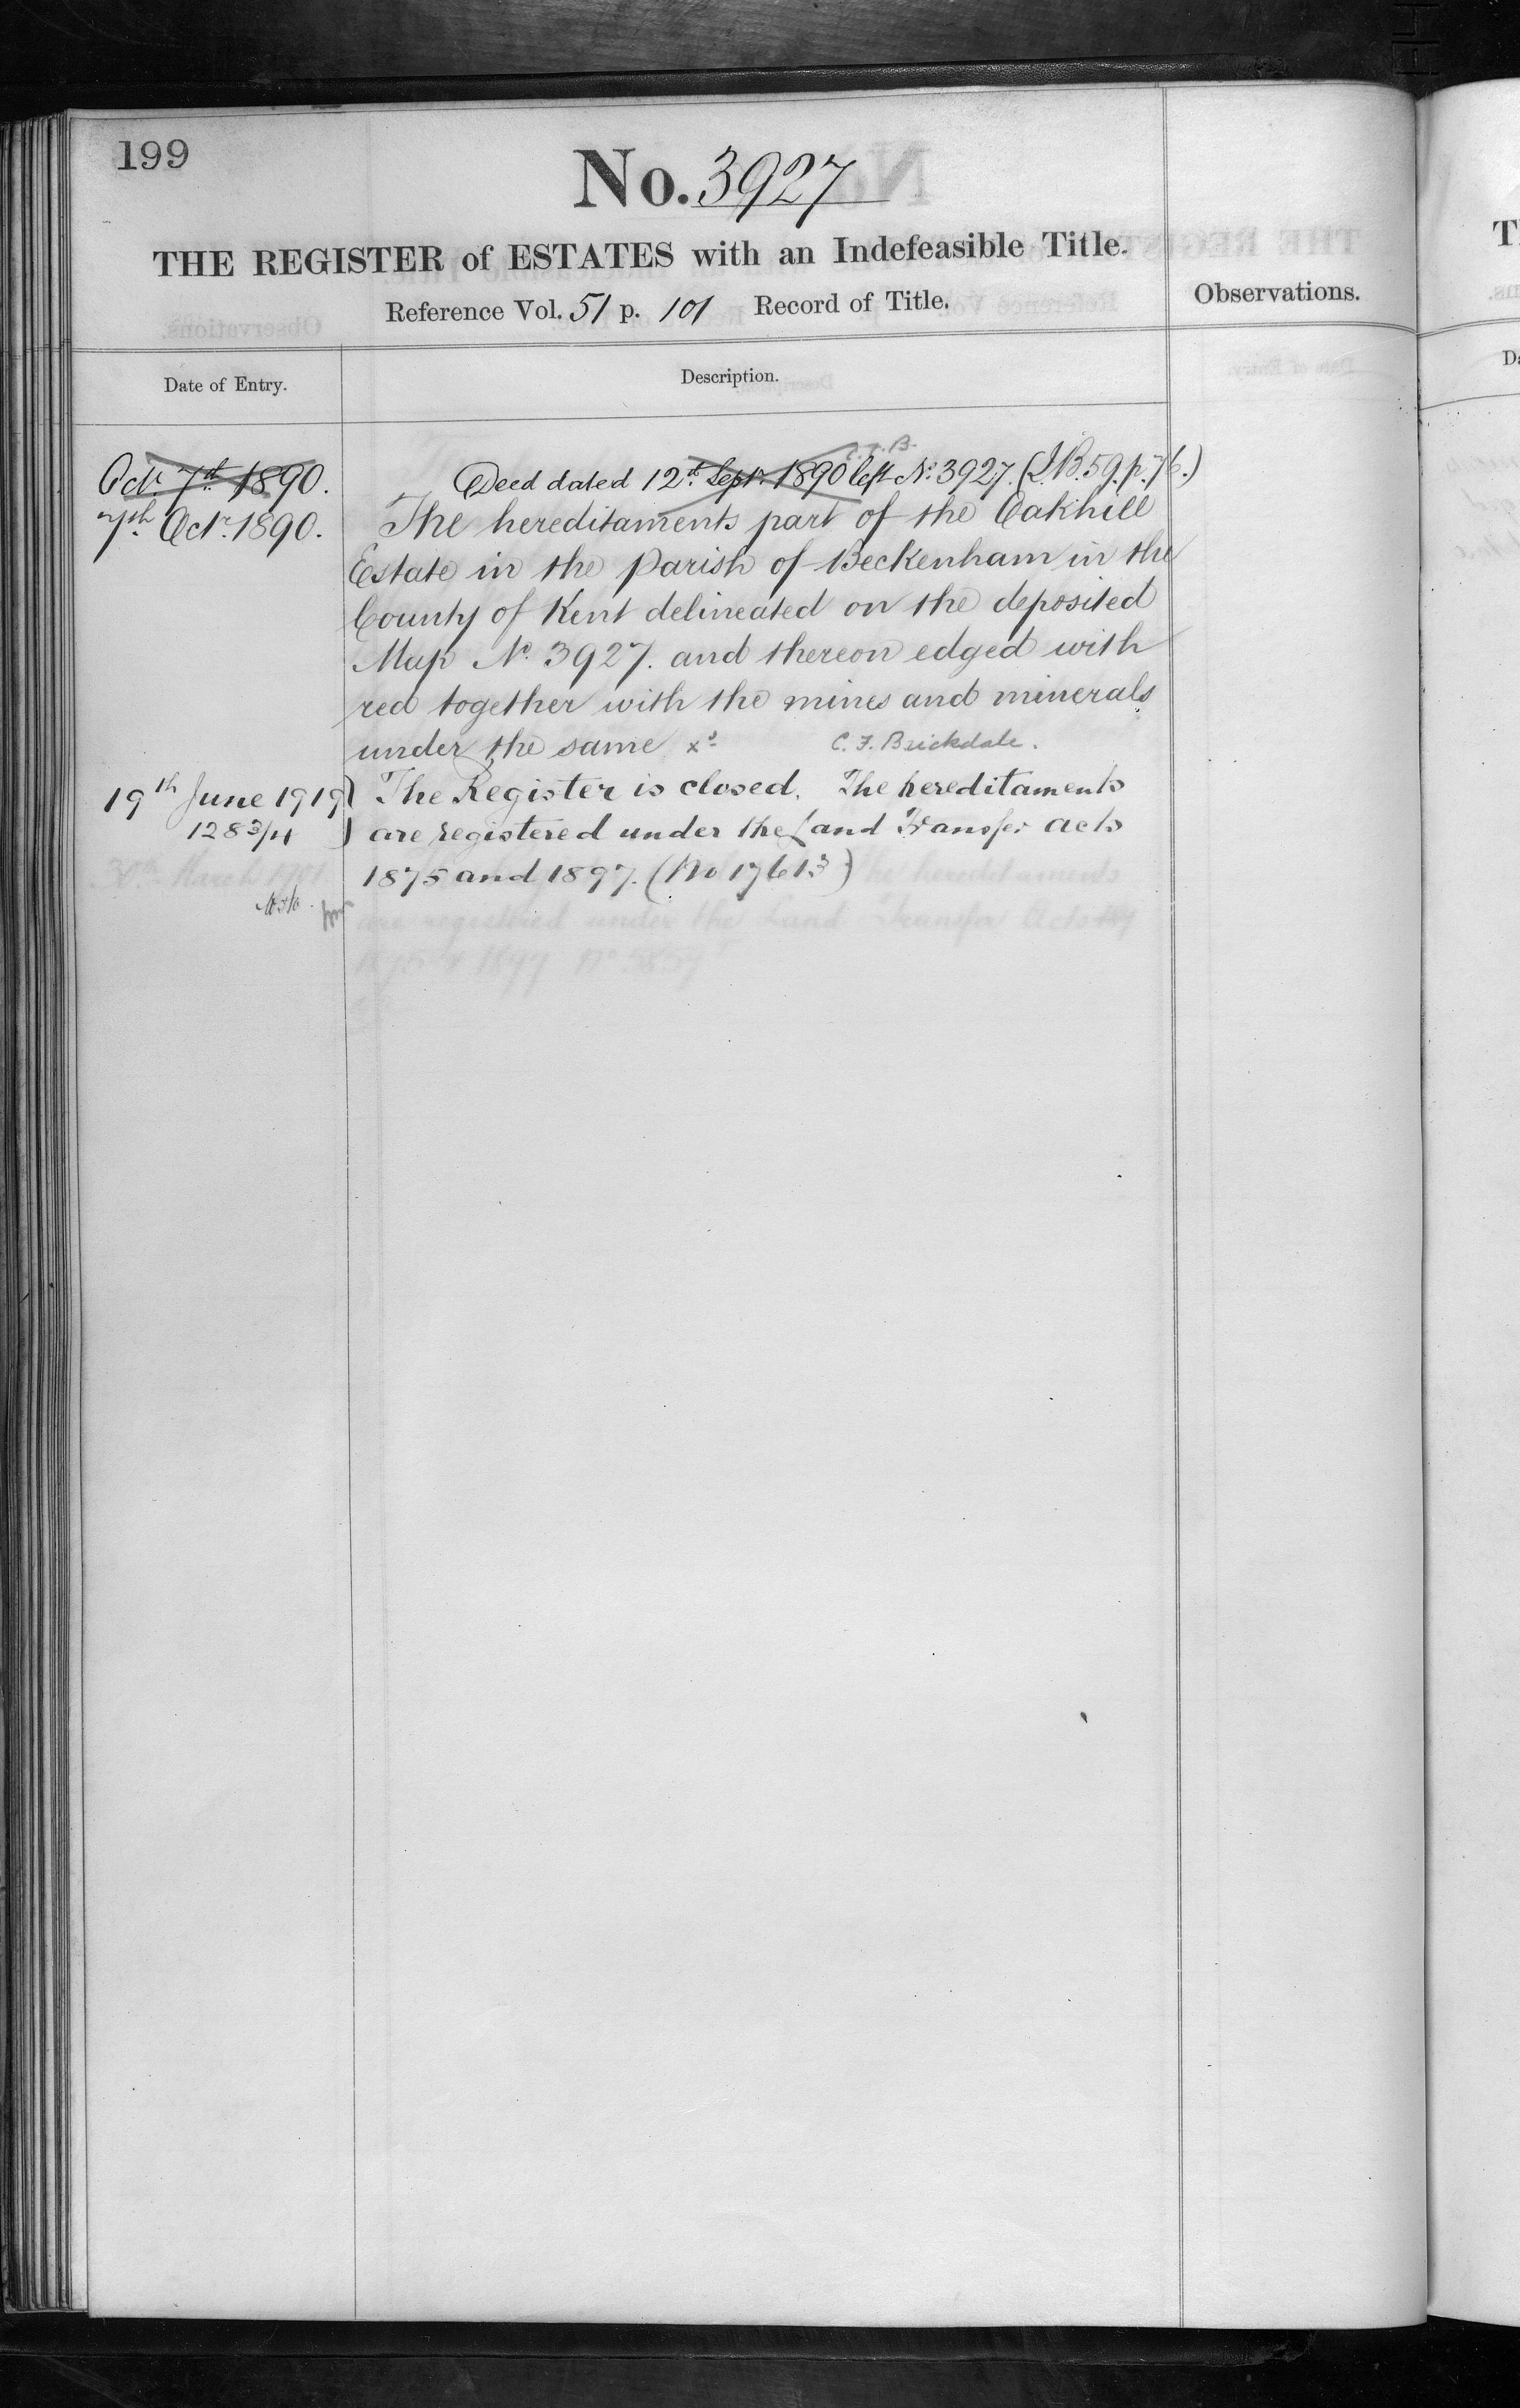 199
No. 3927
THE REGISTER of ESTATES with an Indefeasible Title.
Reference Vol. 51 p. 101 Record of Title.
Observations.
Date of Entry.
Description.
Octr. 7th 1890. Deed dated 12th Septr. 1890 left No. 3927. (I.B. 59. p. 76.)
7th Octr. 1890. The hereditaments part of the Oakhill
Estate in the Parish of Beckenham in the
County of Kent delineated on the deposited
Map No. 3927. and thereon edged with
red together with the mines and minerals
under the same xd C. F. Brickdale.
19th June 1919 The Register is closed. The hereditaments
128 3/11 are registered under the Land Transfer Acts
1875 and 1897. (No 17613)